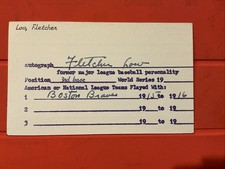 Low, Fletcher
autograph Fletcher Low
former major league baseball personality
Position 3rd base World Series 19
American or National League Teams Played With:
1 Boston Braves 1915 to 1916
2 19 to 19
3 19 to 19